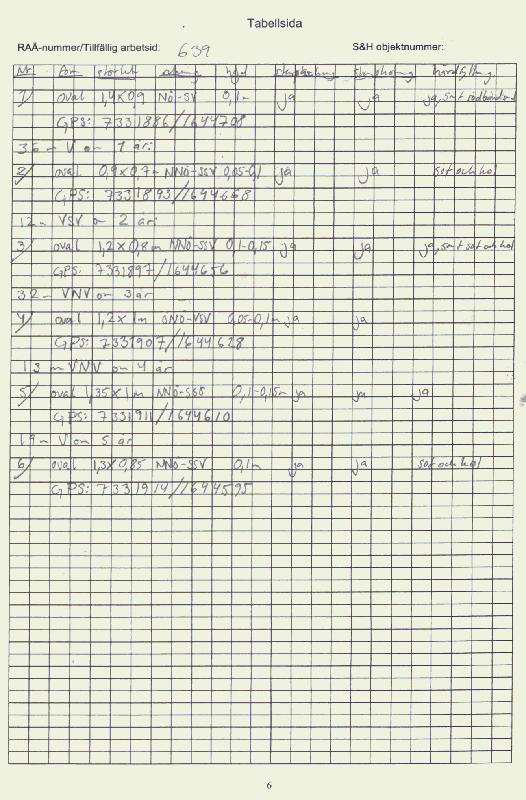 Tabellsida
RAÄ-nummer/Tillfällig arbetsid: 639 S&H objektnummer:
Nr form storlek
1/ oval 1,4x0,9 NÖ-SV 0,1m ja ja ja, samt
GPS: 7331886//1644708
36m V om 1 är:
2/ oval 0,9x0,7m NNÖ-SSV 0,05-0,1 ja ja sot och kol
GPS: 7331893//1644668
12m VSV om 2 är:
3/ oval 1,2x0,8m NNÖ-SSV 0,1-0,15 ja ja ja, samt sot och kol
GPS: 7331897//1644656
32m VNV om 3 är
4/ oval 1,2x1m ÖNÖ-VSV 0,05-0,1m ja ja
GPS: 7331907//1644628
13 m VNV om 4 är
5/ oval 1,35x1m NNÖ-SSV 0,1-0,15m ja ja ja
GPS: 7331911//1644610
19m V om 5 är
6/ oval 1,3x0,85 NNÖ-SSV 0,1m ja ja sot och kol
GPS: 7331914//1644595
6